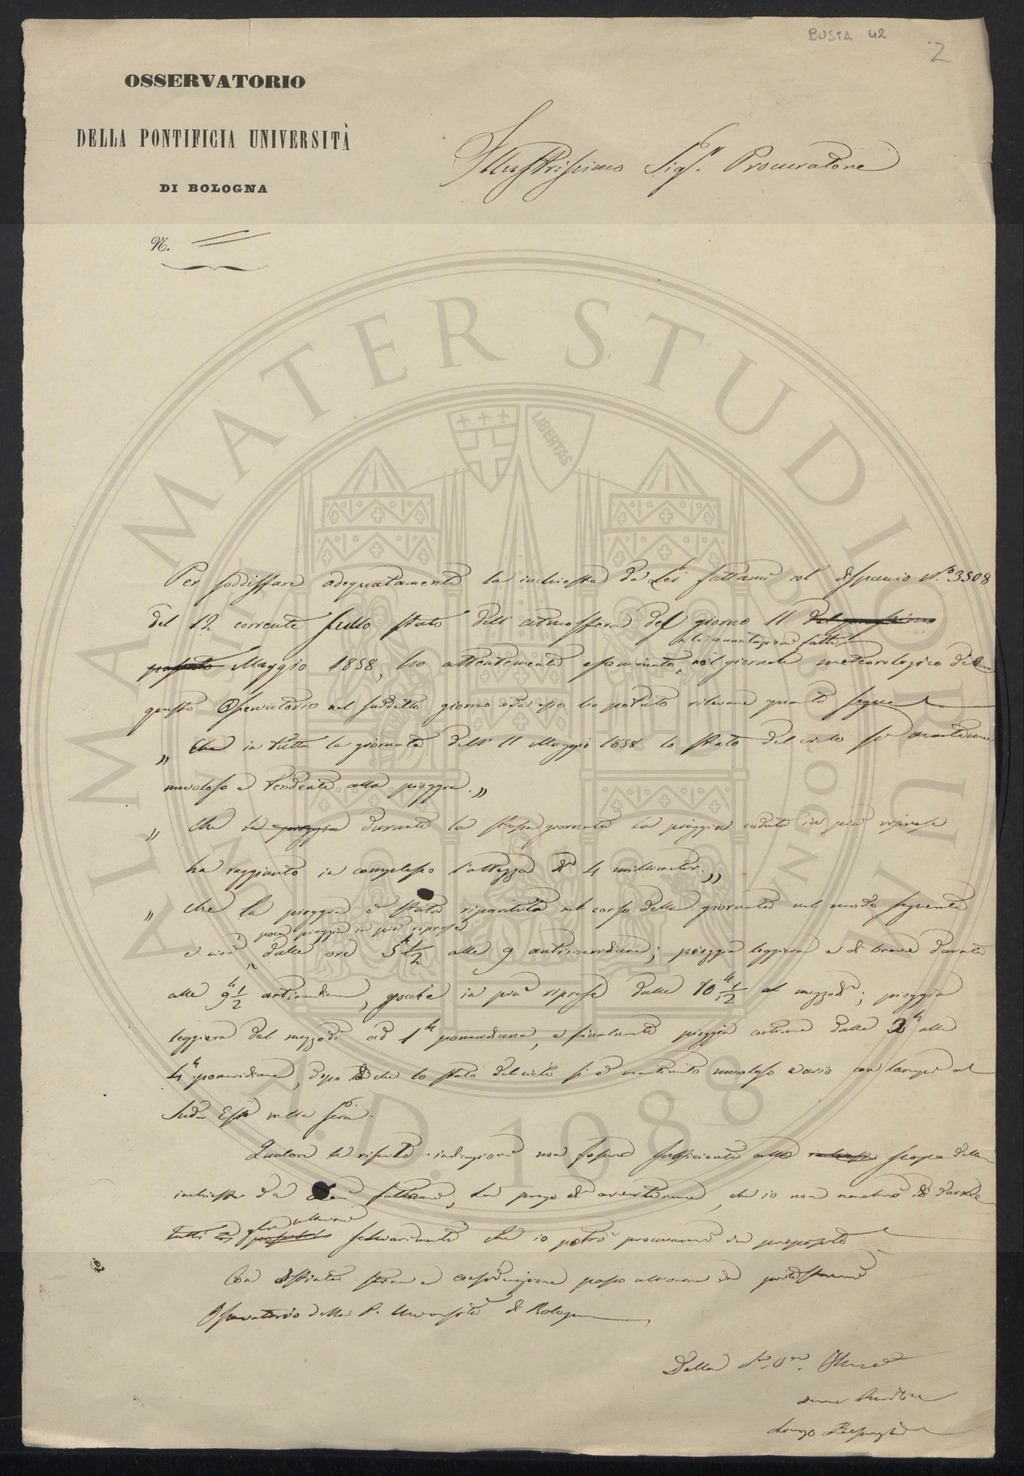 BUSTA 42
2
OSSERVATORIO
DELLA PONTIFICIA UNIVERSITÀ
DI BOLOGNA
N.
Illustrissimo Sigr. Procuratore
Per soddisfare adeguatamente la inchiesta da Lei fattami col dispaccio N.° 3508
del 12 corrente sullo stato dell'atmosfera del giorno 11
le annotazioni fatte
passato Maggio 1858, ho attentamente esaminato, nel giornale meteorologico di
questo Osservatorio nel suddetto giorno ed ho potuto rilevare quanto segue
„ Che in tutta la giornata dell' 11 Maggio 1858 lo stato del cielo si mantenne
nuvoloso e tendente alla pioggia.„
„ Che la pioggia durante la stessa giornata la pioggia caduta in più riprese
ha raggiunto in complesso l'altezza di 4 millimetri.„
„ Che la pioggia è stata ripartita nel corso della giornata nel modo seguente
poca pioggia in più riprese
e cioè dalle ore 5 1/2 alle 9 antimeridiane; pioggia leggiera e di breve durata
alle 9 1/2 antimeridiane, goccie in più riprese dalle 10 1/2 al mezzodì; pioggia
leggiera dal mezzodì ad 1 pomeridiana, e finalmente pioggia dalle 2 alle
4 pomeridiane, dopo di che lo stato del cielo si è mantenuto nuvoloso e vario con lampi al
Sud Est nella sera.
Qualora le riferite indicazioni non fossero sufficienti allo scopo della
inchiesta da Lei fattami, La prego di avvertirmene, che io non mancherò di darle
tutti gli ulteriori schiarimenti che io potrò procurarmi in proposito
Con distinta stima e considerazione passo all'onore di protestarmi
Osservatorio della P. Università di Bologna
Della
Lorenzo Respighi
ALMA MATER STUDIORUM
A.D. 1088
LIBERTAS